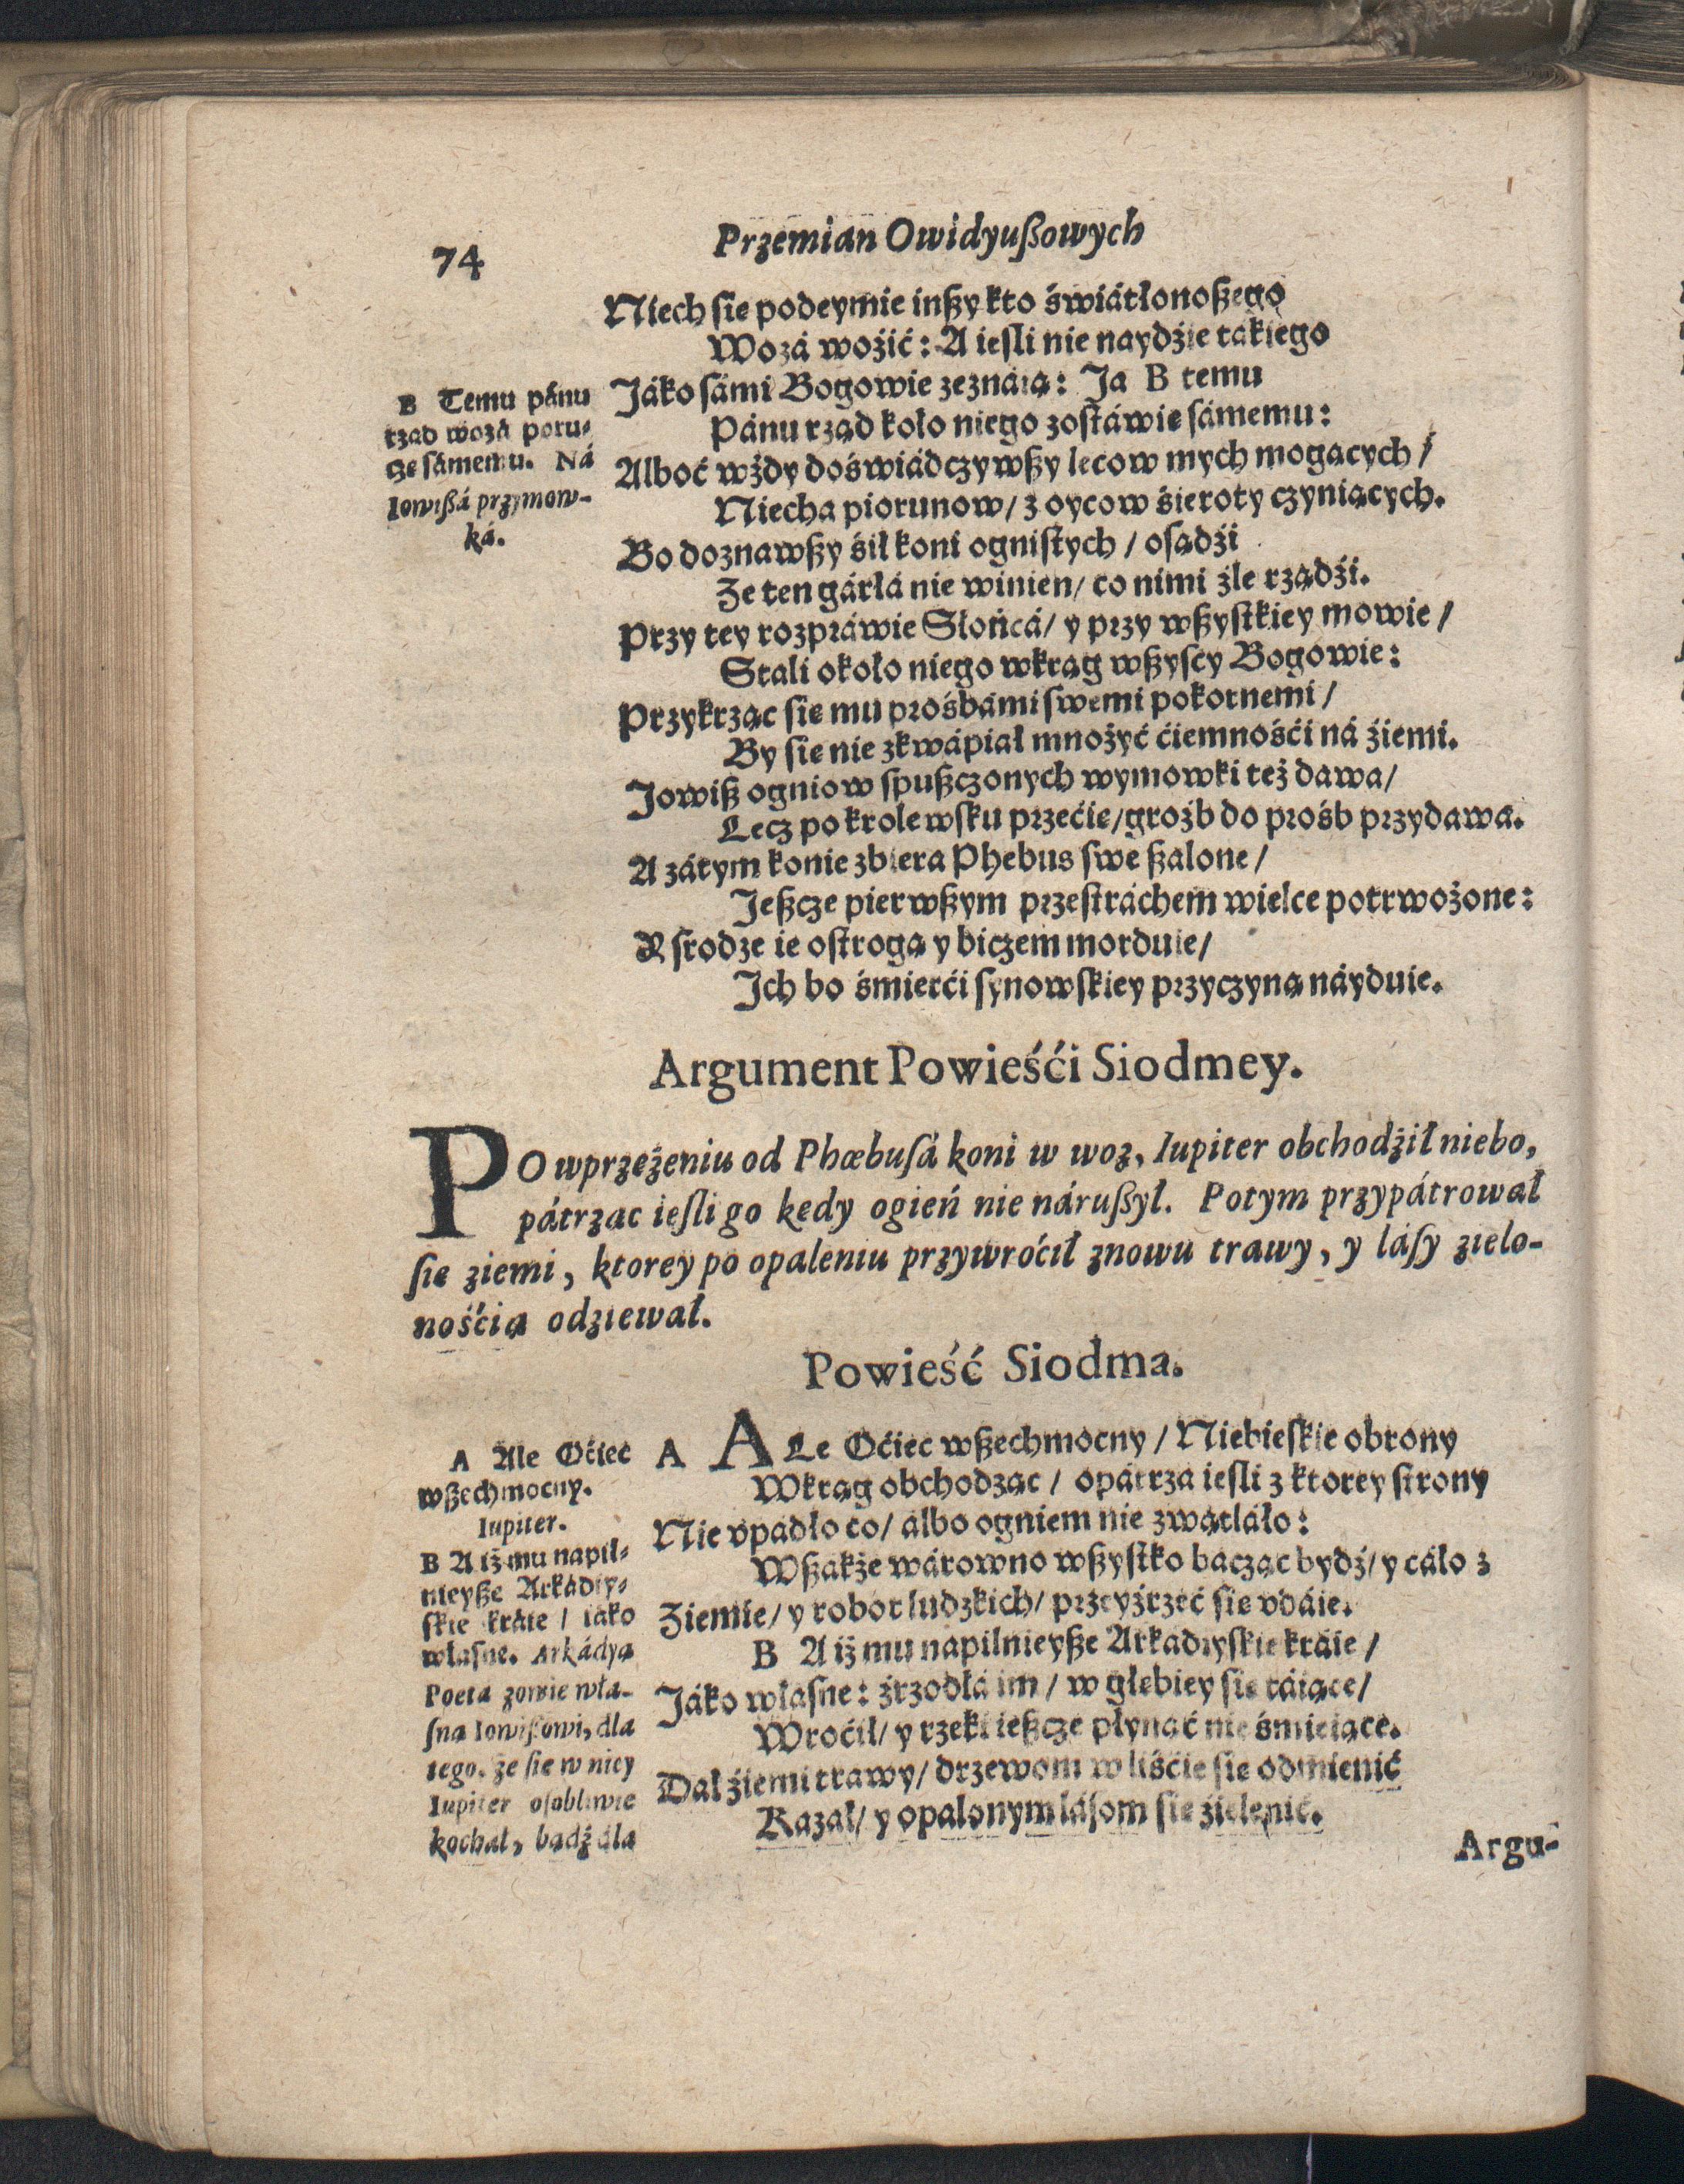 74
Przemian Owidyußowych
Niech sie podeymie inßy kto świátłonoßego
Wozá woźić: A iesli nie naydźie takiego
Jáko sámi Bogowie zeznáią: Ja B temu
Pánu rząd koło niego zostáwię sámemu:
Alboć wżdy doświádczywßy lecow mych mogących /
Niecha piorunow / z oycow śieroty czyniących.
Bo doznawßy śił koni ognistych / osądźi
Ze ten gárłá nie winien / co nimi źle rządźi.
Przy tey rozpráwie Słońcá / y przy wßystkiey mowie /
Stali około niego wkrąg wßyscy Bogowie:
Przykrząc sie mu prośbámi swemi pokornemi /
By sie nie zkwápiał mnożyć ćiemnośći ná źiemi.
Jowiß ogniow spußczonych wymowki też dawa /
Lecz po krolewsku przećie / groźb do prośb przydawa.
A zátym konie zbiera Phebus swe ßalone /
Jeßcze pierwßym przestráchem wielce potrwożone:
Y srodze ie ostrogą y biczem morduie /
Ich bo śmierći synowskiey przyczyną náyduie.
B Temu pánu
rząd wozá poru-
czę sámemu. Ná
Iowißá przymow-
ká.
Argument Powieśći Siodmey.
PO wprzężeniu od Phœbusá koni w woz, Iupiter obchodźił niebo,
pátrząc iesli go kędy ogień nie nárußył. Potym przypátrował
się ziemi, ktorey po opaleniu przywróćił znowu trawy, y lásy zielo-
nośćią odziewał.
Powieść Siodma.
A ALe Oćiec wßechmocny / Niebieskie obrony
Wkrąg obchodząc / opátrza iesli z ktorey strony
Nie vpádło co / álbo ogniem nie zwątláło:
Wßakże wárowno wßystko bacząc bydź / y cáło z
Ziemie / y robot ludzkich / przeyźrzeć sie vdáie.
B A iż mu napilnieyße Arkadiyskie kráie /
Jáko własne: źrzodłá im / w głębiey sie táiące /
Wroćił / y rzeki ießcze płynąć nie śmieiące.
Dał źiemi trawy / drzewom w liśćie sie odmienić
Kazał / y opalonym lásom sie źielenić.
A Ale Oćiec
wßechmocny.
Iupiter.
B A iż mu napil-
nieyße Arkádiy-
skie kráie / iáko
własne. Arkádyą
Poeta zowie wła-
sną Iowißowi, dla
tego, że się w niey
Iupiter osobliwie
kochał, bądź dla
Argu-